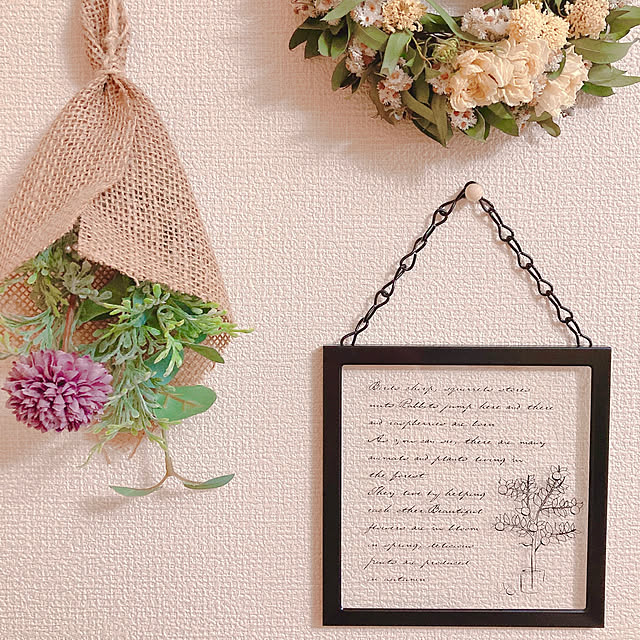 Birds chirp squirrels stores
nuts Rabbits jump here and there
and raspberries are born
As you can see, there are many
animals and plants living in
the forest
They live by helping
each other Beautiful
flowers are in bloom
in spring, delicious
fruits are produced
in autumn